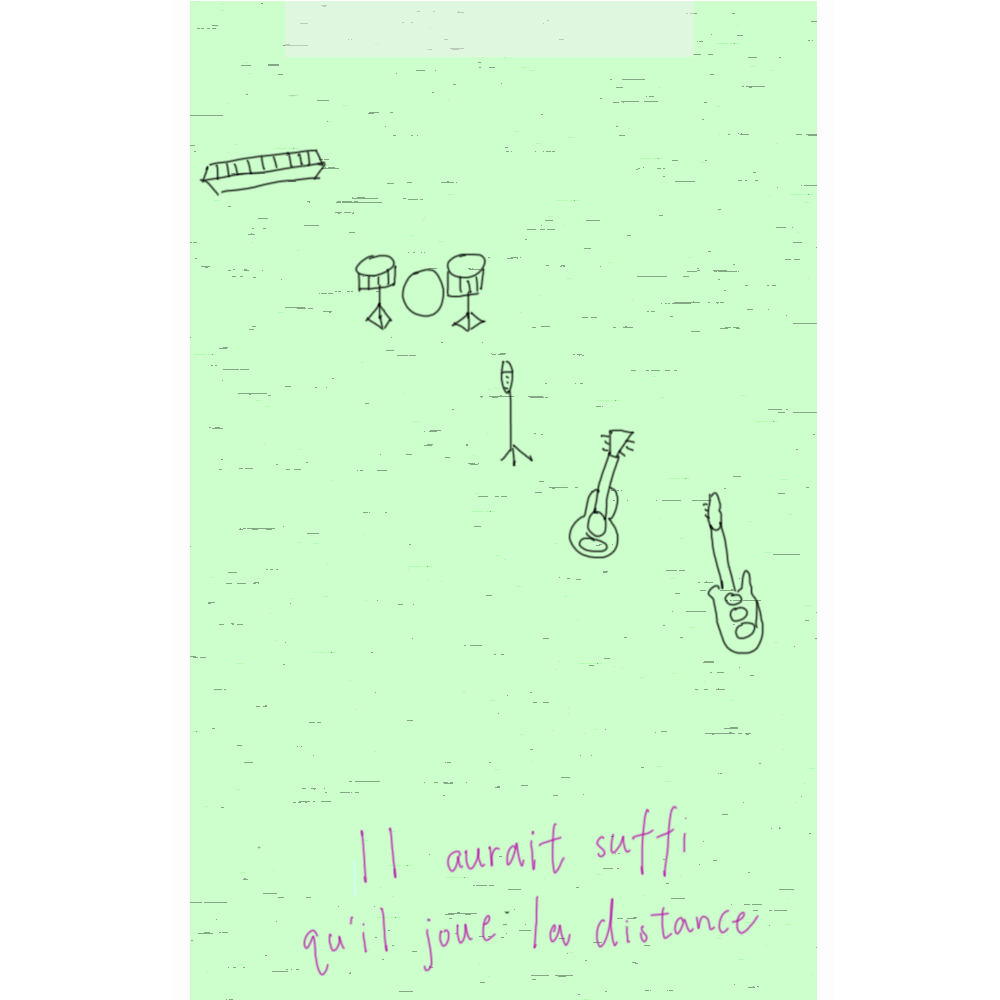 Il aurait suffi
qu'il joue la distance